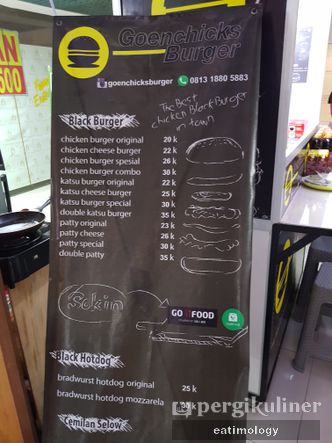 Goenchicks
Burger
goenchicksburger 0813 1880 5883
The Best
chicken Black Burger
in town
Black Burger
chicken burger original 20 k
chicken cheese burger 22 k
chicken burger spesial 26 k
chicken burger combo 30 k
katsu burger original 22 k
katsu cheese burger 25 k
katsu burger special 30 k
double katsu burger 35 k
patty original 23 k
patty cheese 26 k
patty special 30 k
double patty 35 k
GO FOOD
Black Hotdog
bradwurst hotdog original 25 k
bradwurst hotdog mozzarela 30 k
Cemilan Selow
pergikuliner
eatimology